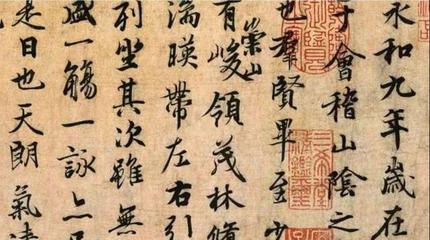 永和九年歲在
于會稽山陰之
也羣賢畢至少
有崇山峻領茂林脩
湍暎帶左右引
列坐其次雖無
盛一觴一詠亦足
是日也天朗氣清